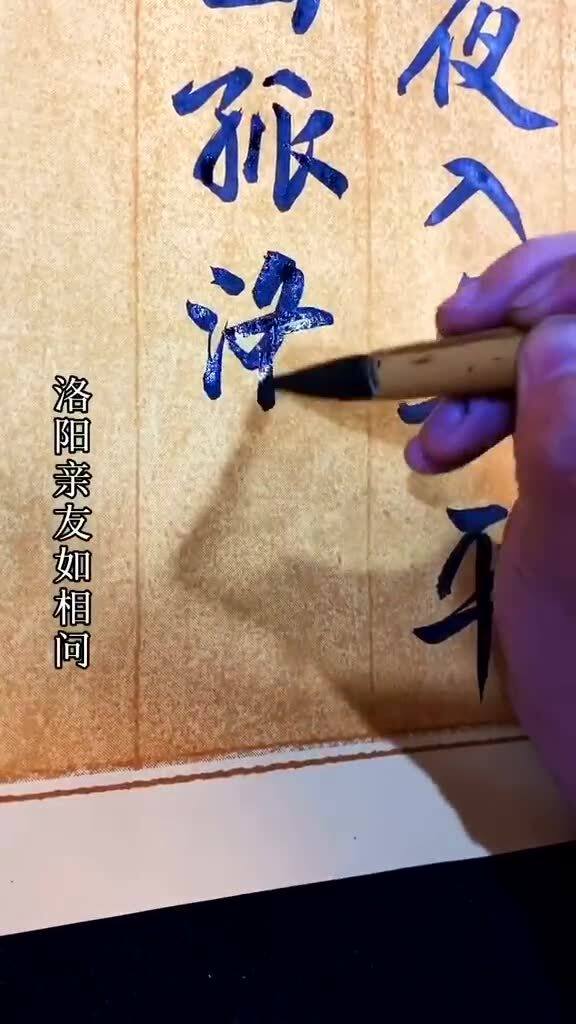 夜入平
孤洛
洛阳亲友如相问